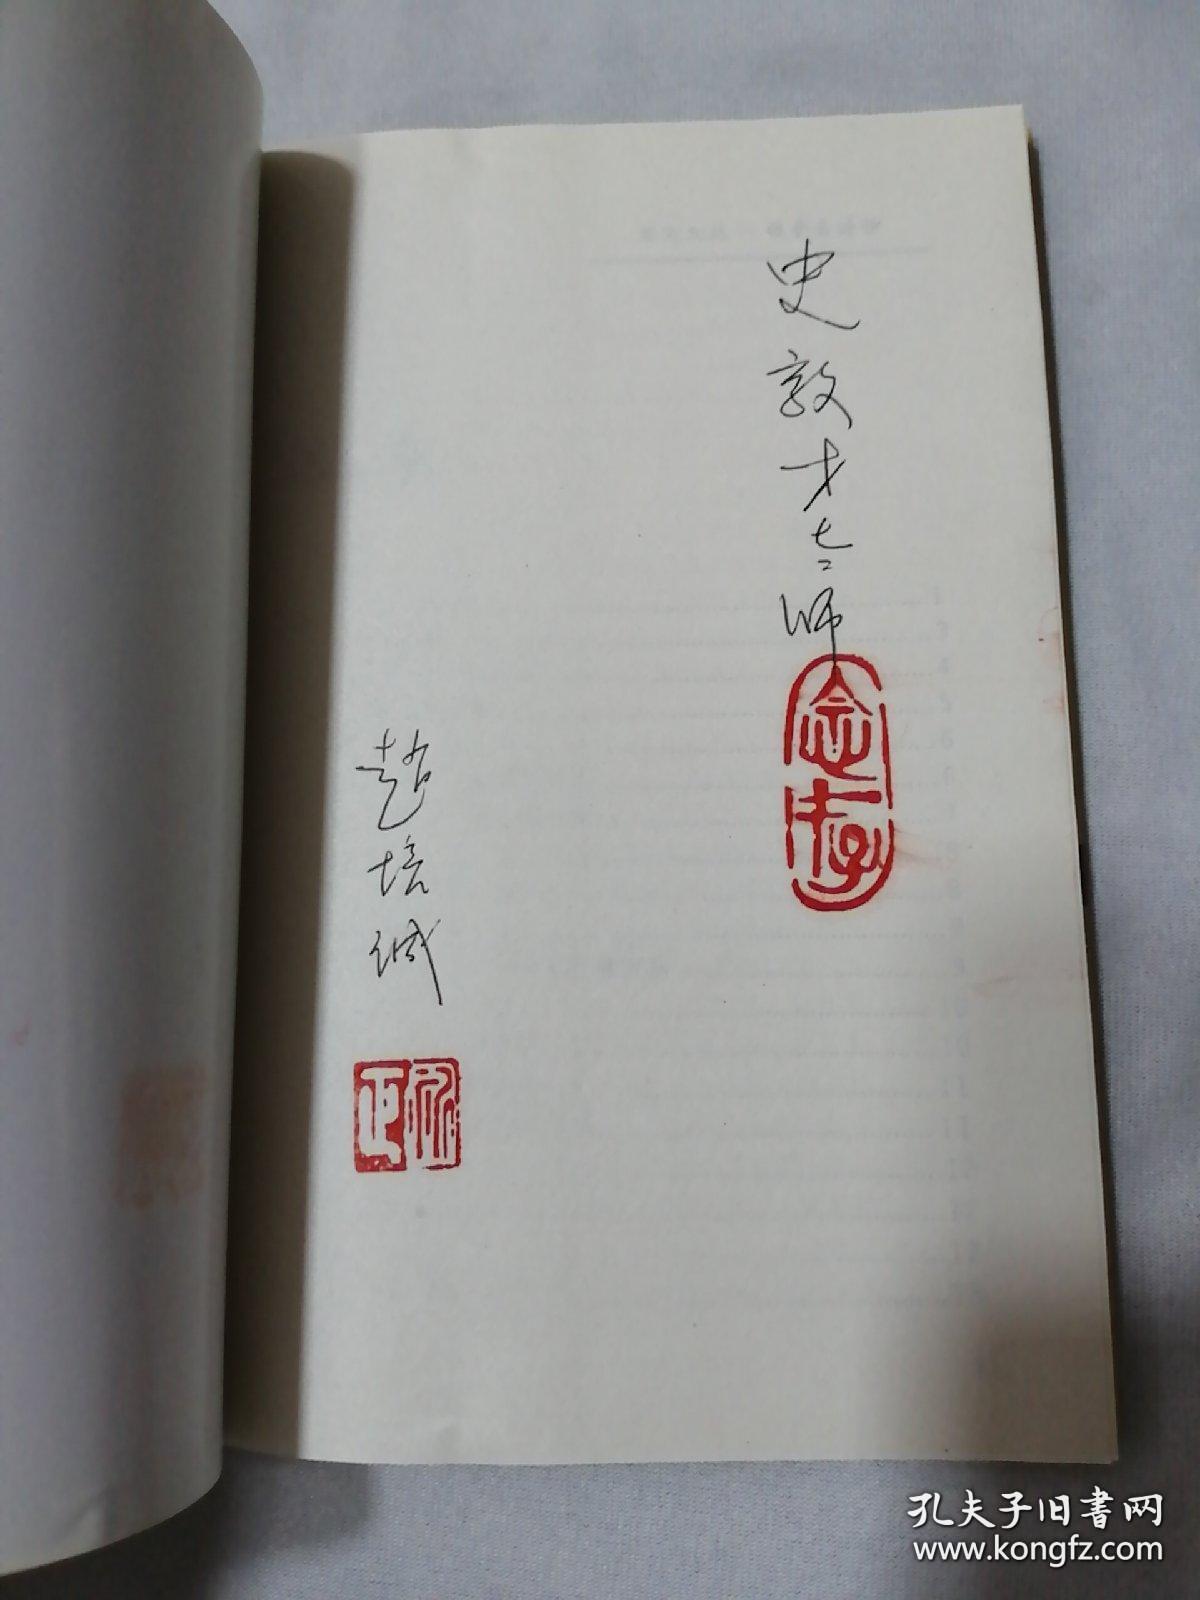 史敦才老师
念存
赵培诚
孔夫子旧書网
www.kongfz.com